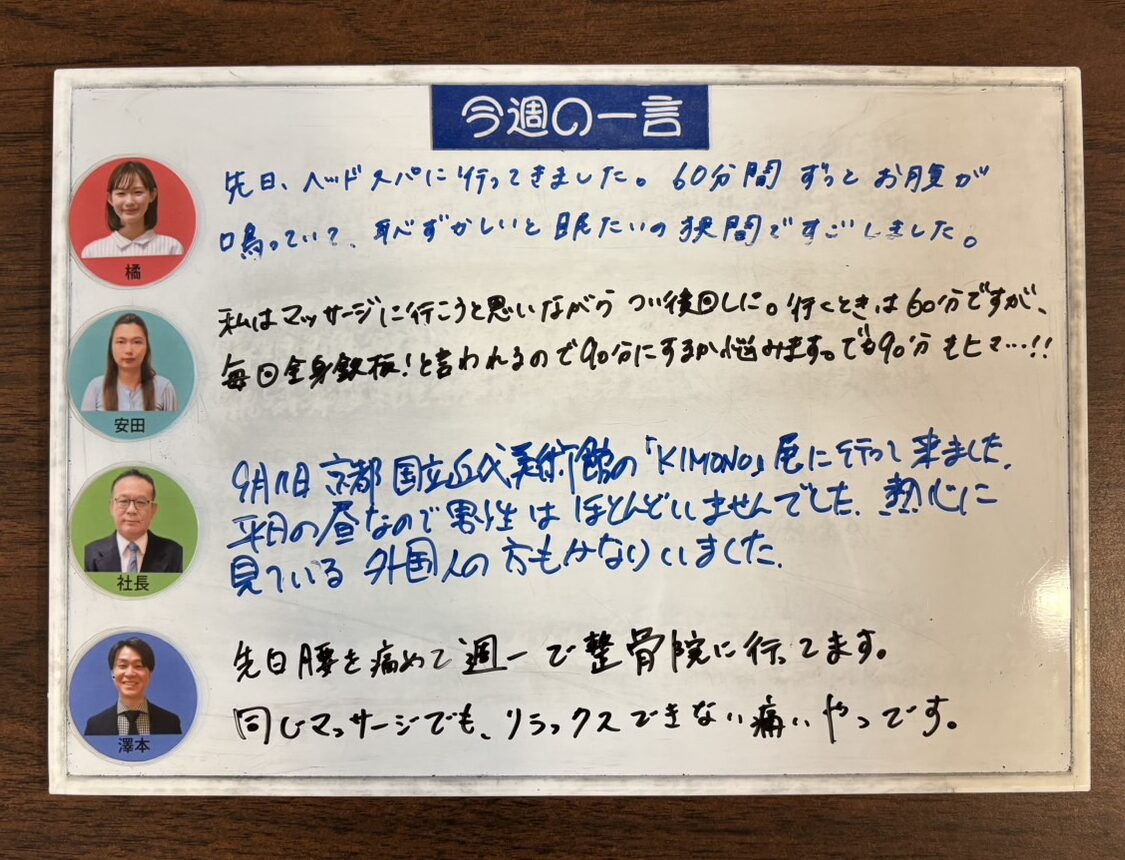 今週の一言
先日、ヘッドスパに行ってきました。60分間 ずっと お腹が
鳴っていて、恥ずかしいと 眠たいの 狭間ですごしました。
橘
私はマッサージに行こうと思いながら つい後回しに。行くときは60分ですが、
毎回全身鉄板！と言われるので90分にするか悩みます。でも90分もヒマ…!!
安田
9月11日 京都国立近代美術館の「KIMONO」展に行って来ました.
平日の昼なので男性は ほとんどいませんでした. 熱心に
見ている 外国人の方もかなりいました.
社長
先日腰を痛めて週一で整骨院に行ってます。
同じマッサージでも、リラックスできない痛いやつです。
澤本